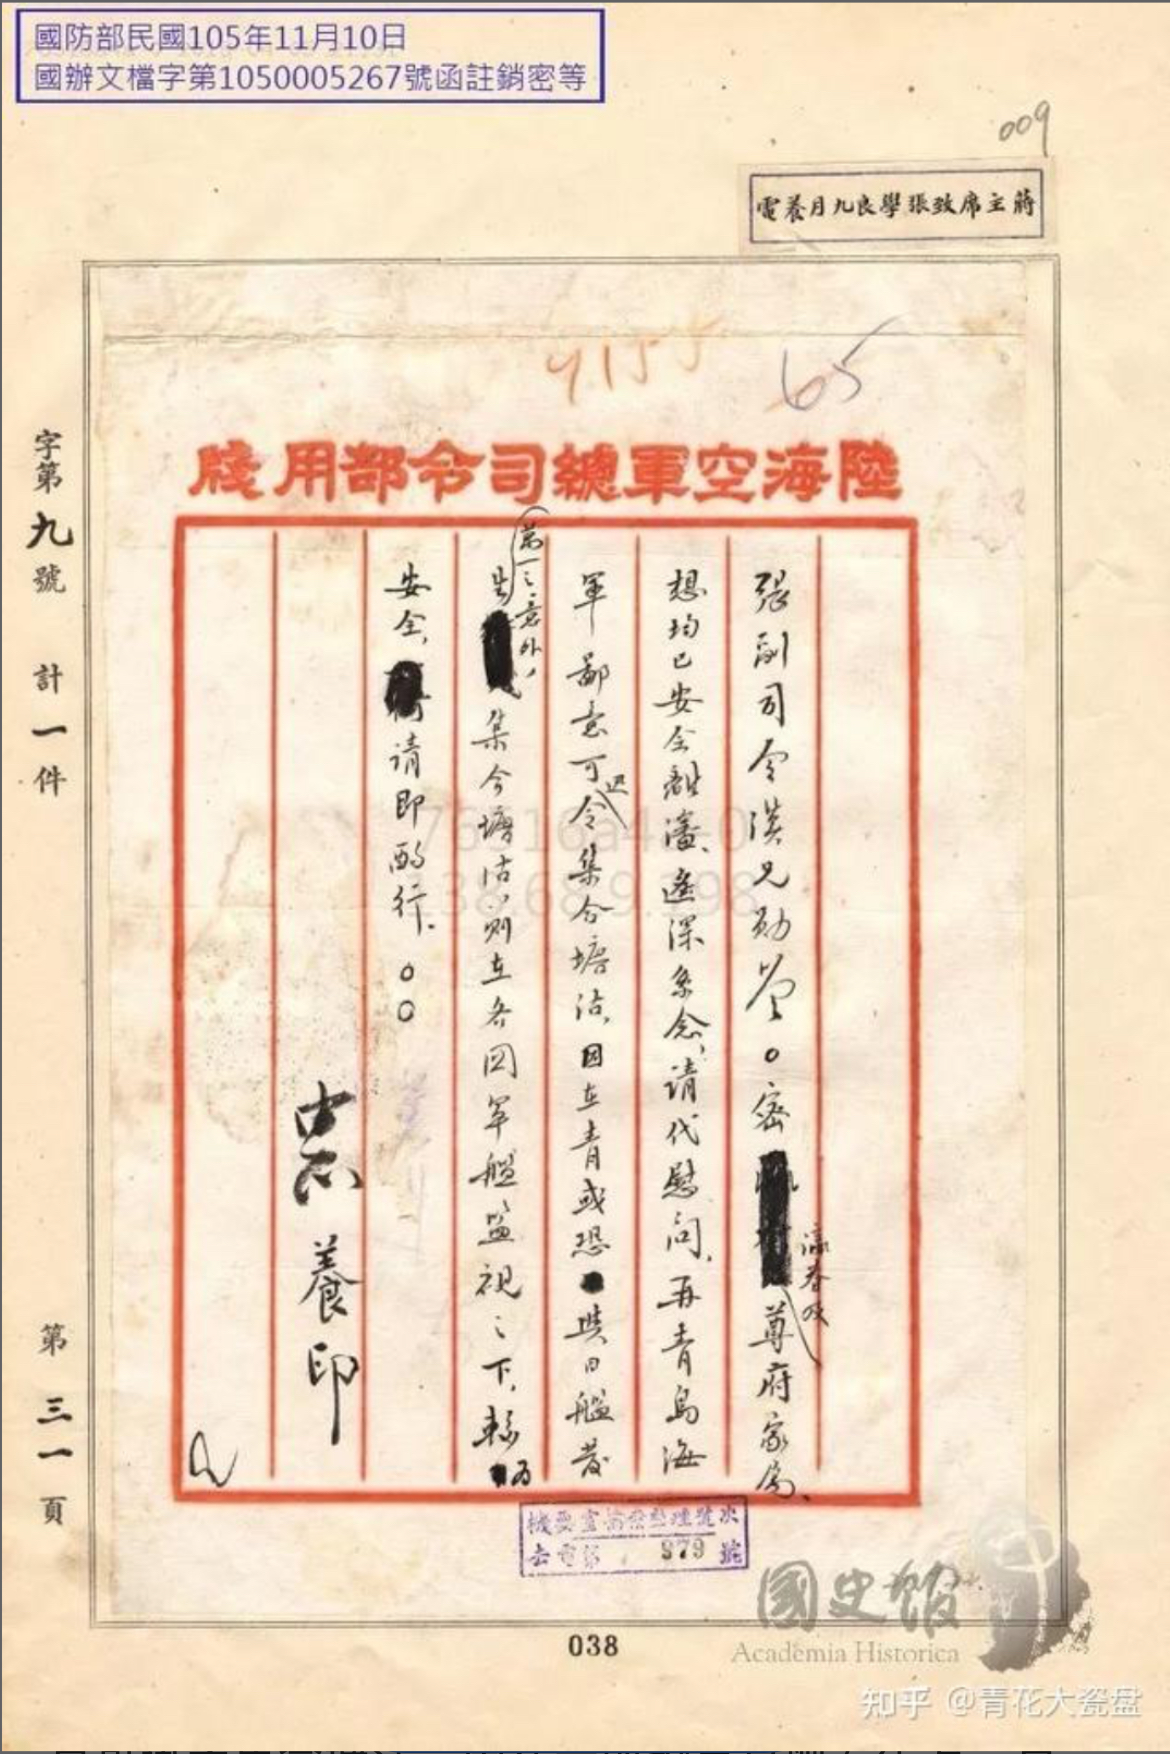 國防部民國105年11月10日
國辦文檔字第1050005267號函註銷密等
009
蔣主席致張學良九月養電
4155
65
陸海空軍總司令部用牋
張副司令漢兄勛鑒○密
瀛眷及
尊府家屬、
想均已安全離瀋、遙深系念、請代慰問、再青島海
軍鄙意可
迅
令集合塘沽、因在青或恐與日艦發
生
萬一之意外、
集合塘沽、則在各國軍艦監視之下、較為
安全、請即酌行.○○
中正養印
機要室檔案整理號次
去電第979號
字第九號 計一件 第三一頁
038
國史館
Academia Historica
知乎 @青花大瓷盘